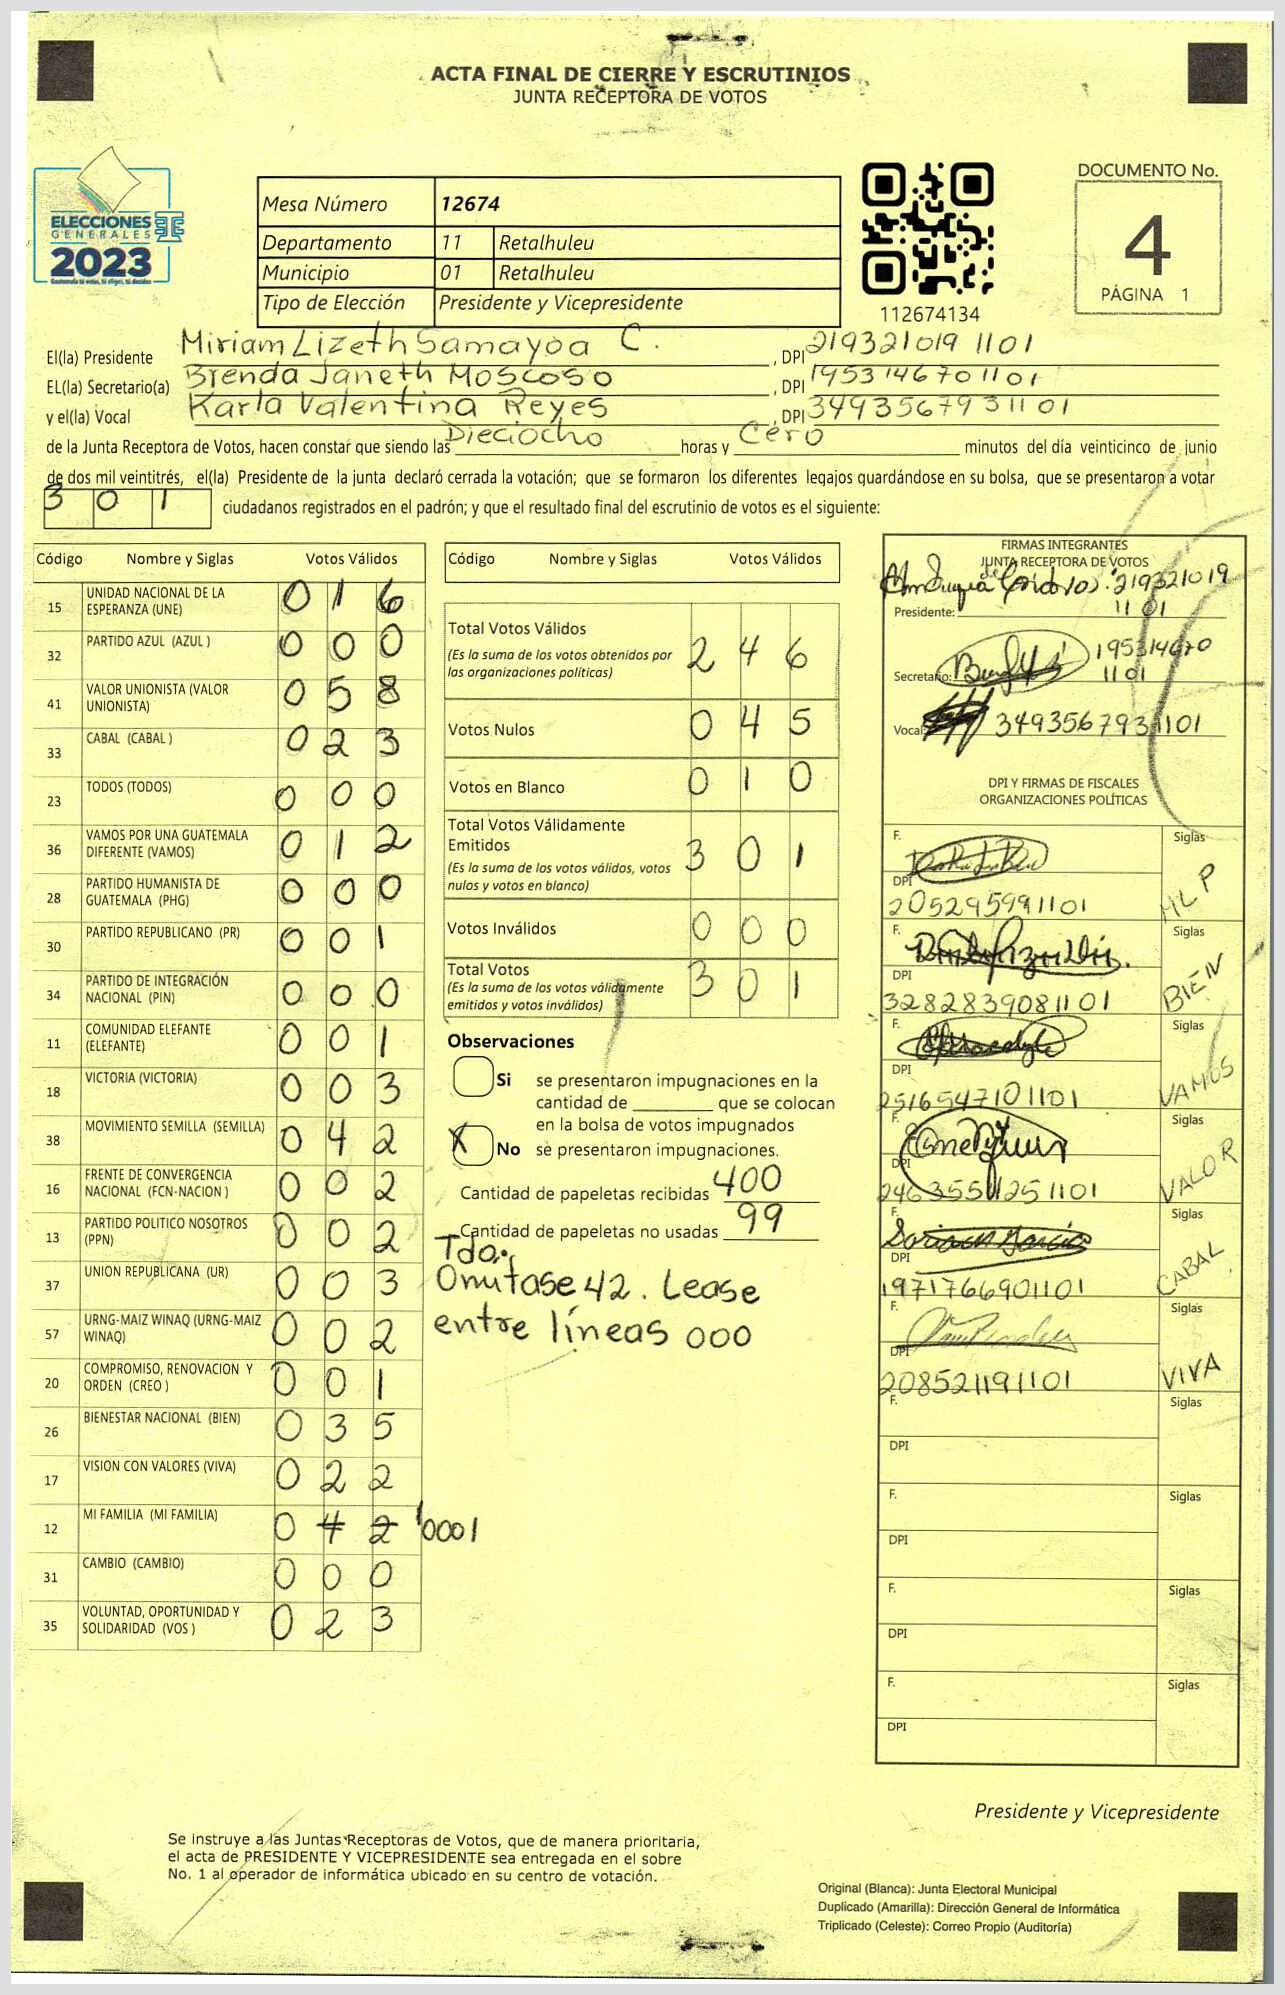 ACTA FINAL DE CIERRE Y ESCRUTINIOS
JUNTA RECEPTORA DE VOTOS
ELECCIONES
GENERALES
2023
Guatemala tú votas, tú eliges, tú decides
Mesa Número 12674
Departamento 11 Retalhuleu
Municipio 01 Retalhuleu
Tipo de Elección Presidente y Vicepresidente
112674134
DOCUMENTO No.
4
PÁGINA 1
El(la) Presidente Miriam Lizeth Samayoa C. , DPI 219321019 1101
EL(la) Secretario(a) Brenda Janeth Moscoso , DPI 1953146701101
y el(la) Vocal Karla Valentina Reyes , DPI 3493567931101
de la Junta Receptora de Votos, hacen constar que siendo las Dieciocho horas y Cero minutos del día veinticinco de junio
de dos mil veintitrés, el(la) Presidente de la junta declaró cerrada la votación; que se formaron los diferentes legajos guardándose en su bolsa, que se presentaron a votar
3 0 1 ciudadanos registrados en el padrón; y que el resultado final del escrutinio de votos es el siguiente:
Código Nombre y Siglas Votos Válidos
15 UNIDAD NACIONAL DE LA ESPERANZA (UNE) 0 1 6
32 PARTIDO AZUL (AZUL ) 0 0 0
41 VALOR UNIONISTA (VALOR UNIONISTA) 0 5 8
33 CABAL (CABAL ) 0 2 3
23 TODOS (TODOS) 0 0 0
36 VAMOS POR UNA GUATEMALA DIFERENTE (VAMOS) 0 1 2
28 PARTIDO HUMANISTA DE GUATEMALA (PHG) 0 0 0
30 PARTIDO REPUBLICANO (PR) 0 0 1
34 PARTIDO DE INTEGRACIÓN NACIONAL (PIN) 0 0 0
11 COMUNIDAD ELEFANTE (ELEFANTE) 0 0 1
18 VICTORIA (VICTORIA) 0 0 3
38 MOVIMIENTO SEMILLA (SEMILLA) 0 4 2
16 FRENTE DE CONVERGENCIA NACIONAL (FCN-NACION ) 0 0 2
13 PARTIDO POLITICO NOSOTROS (PPN) 0 0 2
37 UNION REPUBLICANA (UR) 0 0 3
57 URNG-MAIZ WINAQ (URNG-MAIZ WINAQ) 0 0 2
20 COMPROMISO, RENOVACION Y ORDEN (CREO ) 0 0 1
26 BIENESTAR NACIONAL (BIEN) 0 3 5
17 VISION CON VALORES (VIVA) 0 2 2
12 MI FAMILIA (MI FAMILIA) 0 4 2 000
31 CAMBIO (CAMBIO) 0 0 0
35 VOLUNTAD, OPORTUNIDAD Y SOLIDARIDAD (VOS ) 0 2 3
Código Nombre y Siglas Votos Válidos
Total Votos Válidos 2 4 6
(Es la suma de los votos obtenidos por
las organizaciones políticas)
Votos Nulos 0 4 5
Votos en Blanco 0 1 0
Total Votos Válidamente
Emitidos 3 0 1
(Es la suma de los votos válidos, votos
nulos y votos en blanco)
Votos Inválidos 0 0 0
Total Votos 3 0 1
(Es la suma de los votos válidamente
emitidos y votos inválidos)
Observaciones
Si se presentaron impugnaciones en la
cantidad de ________ que se colocan
en la bolsa de votos impugnados
X No se presentaron impugnaciones.
Cantidad de papeletas recibidas 400
Cantidad de papeletas no usadas 99
Tdo:
Omitase 42. Lease
entre líneas 000
FIRMAS INTEGRANTES
JUNTA RECEPTORA DE VOTOS
219321019
Presidente: 1101
195314670
Secretario: 1101
Vocal: 3493567931101
DPI Y FIRMAS DE FISCALES
ORGANIZACIONES POLÍTICAS
F. Siglas
DPI 2052959991101 MLP
F. Siglas
DPI 3282839081101 BIEN
F. Siglas
DPI 2516547101101 VAMOS
F. Siglas
DPI 2463555111251101 VALOR
F. Siglas
DPI 1971766901101 CABAL
F. Siglas
DPI 2085211911101 VIVA
F. Siglas
DPI
F. Siglas
DPI
F. Siglas
DPI
F. Siglas
DPI
Presidente y Vicepresidente
Se instruye a las Juntas Receptoras de Votos, que de manera prioritaria,
el acta de PRESIDENTE Y VICEPRESIDENTE sea entregada en el sobre
No. 1 al operador de informática ubicado en su centro de votación.
Original (Blanca): Junta Electoral Municipal
Duplicado (Amarilla): Dirección General de Informática
Triplicado (Celeste): Correo Propio (Auditoría)